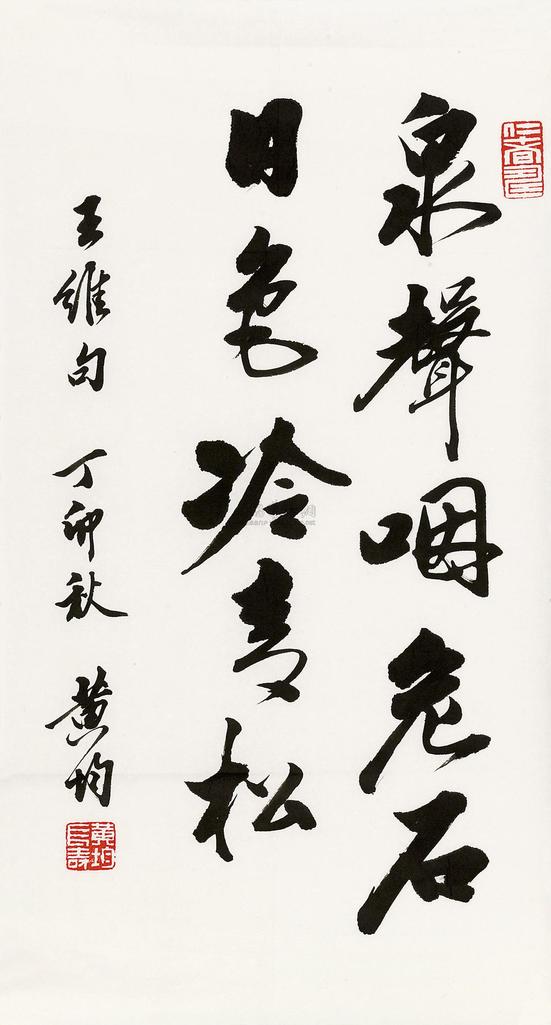 泉聲咽危石
日色冷青松
王維句 丁卯秋 黄均